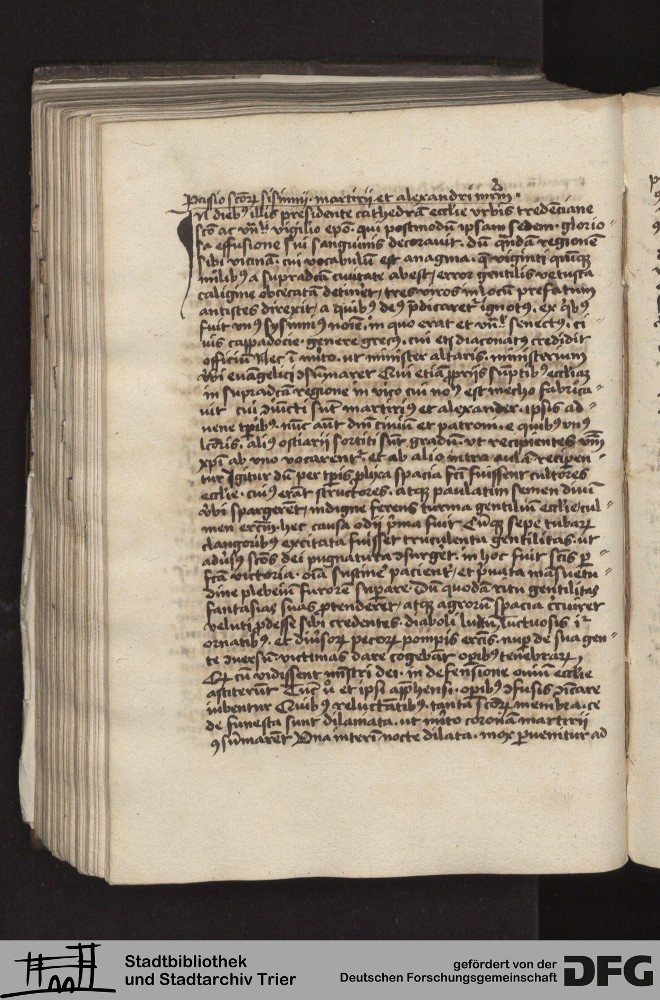 Passio sctoꝝ sisinnij · martirij et alexandri mrm̄ ·
In diebꝰ illis presidente cathedrā ecclie vrbis tredenciane
scō ac vn̄li vigilio epō · qui postmodū ipsam sedem · glorio-
sa effusione sui sanguinis decorauit · dū qnd̄a regionē
sibi vicinā · cui vocabulū est anagnia · q viginti quīqꝫ
milibꝰ a supradcā ciuitate abest / error gentilis vetusta
caligine obcecatā detinet / tres viros in locū prefatum
antistes direxit / a quibꝰ deꝰ p̄dicaret ignotꝰ · ex qbꝰ
fuit vnꝰ sysinniꝰ noīe · in quo erat et vn̄li senectꝰ · ci-
uis cappadocie · genere grecꝰ · cui etiā diaconatꝰ credidit
officiū Nec īmito · vt minister altaris · ministerium
v̄bi euāgelici ꝯsūmaret Qui etiā ꝓprijs sūptibꝰ eccliaꝫ
in supradcā regione in vico cui nomē est mecho fabrica-
uit · cui iuncti sūt martiriꝰ et alexander · ipsis ad-
uene tpibꝰ · nūc aūt dn̄i ciuiū et patroni · e quibꝰ vnꝰ
lcōris · aliꝰ ostiarij sortiti sūt gradū · vt recipientes vn̄i
xp̄i ab vno vocarent̄ · et ab alio intra aulā recipien-
tur Igitur dū per tp̄is ꝓlixa spacia fcī fuissent cultores
ecclie · cuiꝰ erāt structores · atqꝫ paulatim semen diuī
v̄bi spargeret / indigne ferens turma gentiliū ecclie cul-
men erctm̄ · hec causa odij prima fuit Cūqꝫ sepe tubaꝝ
clangoribꝰ excitata fuisset truculenta gentilitas · ut
adūsꝰ scōs dei pugnatura ꝯsurget · in hoc fuit scīs ꝑ-
fcā victoria · oīa sustinē pacient̄ / et priuata māsuetu-
dine plebeiū furorē supare · Dū quodā ritu gentilitas
fantasias suas p̄tenderet / atqꝫ agroꝝ spacia circuiret
veluti ꝓdesse sibi credentes · diaboli ludū luctuosis
ornatibꝰ · et diūsoꝝ pecoꝝ pompis ercīs · nuꝑ de sua gen-
te ꝯuersū victimas dare cogebāt oꝑibꝰ tenebraꝝ /
Qd̄ cū vidissent mīstri dei · in defensione ouiū ecclie
astiterūt Tunc v̊ et ipsi appħensi · oꝑibꝰ ꝯfusis
iubentur Quibꝰ reluctātibꝰ · tanta scōꝝ membra · ce-
de funesta sunt dilamata · ut mito coronā martirij
ꝯsūmarēt Vna interī nocte dilata · mox ꝑuenitur ad
Stadtbibliothek
und Stadtarchiv Trier
gefördert von der
Deutschen Forschungsgemeinschaft
DFG